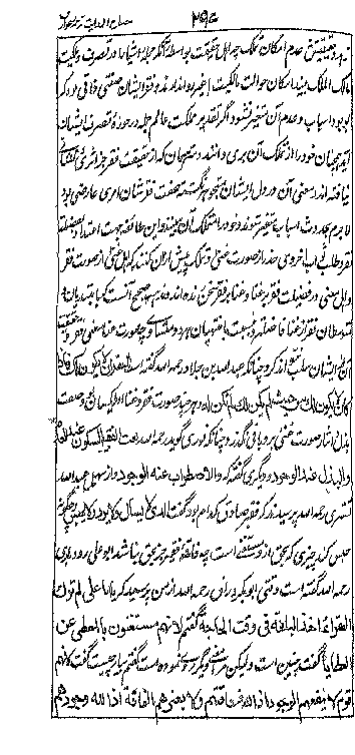 ۲۹۶
عدم امکان تملک چه اهل حقیقت بواسطه آنکه جمله اشیا را در تصرف و ملکیت
مالک الملک بینند امکان حوالت مالکیت بغیر روا ندارند و فقر ایشان صفتی ذاتی بود که
بوجود اسباب و عدم آن متغیر نشود و اگر تقدیرا مملکت عالم جمله در حوزه تصرف ایشان
آید همچنان خود را از تملک آن بری دانند و مترسمان که از حقیقت فقر جز اثری
نیافته‌اند و معنی آن در دل ایشان متجوهر نگشته صفت فقر شان امری عارضی بود
لاجرم بحدوث اسباب متغیر شوند و خود را متملک آن بینند و این طائفه جهت اعتداد بفضیلت
فقر و طلب ثواب اخروی حذر از صورت غنی و تملک بیش از آن کنند که اهل غنی از صورت فقر
و اهل معنی در فضیلت فقر بر غنا و غنا بر فقر سخن رانده‌اند و مذهب صحیح آنست که با مبتدیان و
متوسطان فقر از غنا فاضلتر و نسبت با منتهیان هر دو متساوی چه صورت غنا معنی فقر و حقیقت
آن از ایشان سلب نتواند کرد چنانکه عبدالله بن جلا رحمه الله گفته است الفقر ان لا یکون لک فاذا
کان لک لا یکون لک من حیث لم یکن لک لم یکن لک و هر چند صورت فقر و غنا
بذل ایثار صورت غنی بر وی باقی گذارد چنانکه نوری گوید رحمه الله نعت الفقیر السکون عند العدم
والبذل عند الوجود و دیگری گفته که والاضطراب عند الوجود و از سهل عبدالله
تستری رحمه الله پرسیدند که فقیر صادق کدام بود گفت الذی لا یسأل ولا یرد ولا یحبس و چگونه
حبس کند چیزی که بحق از و مستغنی است چه فاقه فقیر جز بحق نباشد ابو علی رودباری
رحمه الله گفته است وقتی ابو بکر دقاق رحمه الله از من پرسید که یا ابا علی لم ترک
الفقراء اخذ البلغة فی وقت الحاجة گفتم لانهم مستغنون بالمعطی عن
العطایا گفت چنین است ولیکن مرا معنی دیگر روی نموده است گفتم بیار چیست گفت لانهم
قوم لا ینفعهم الوجود اذ الله فاقتهم ولا یضرهم الفاقة اذ الله وجودهم